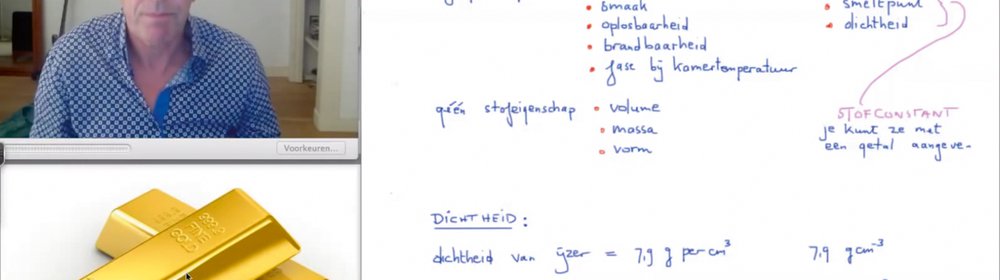 smaak
smeltpunt
oplosbaarheid
dichtheid
brandbaarheid
fase bij kamertemperatuur
géén stofeigenschap
volume
massa
vorm
STOFCONSTANT
je kunt ze met
een getal aangeve-
Voorkeuren...
DICHTHEID:
dichtheid van ijzer = 7,9 g per cm³ 7,9 g cm⁻³